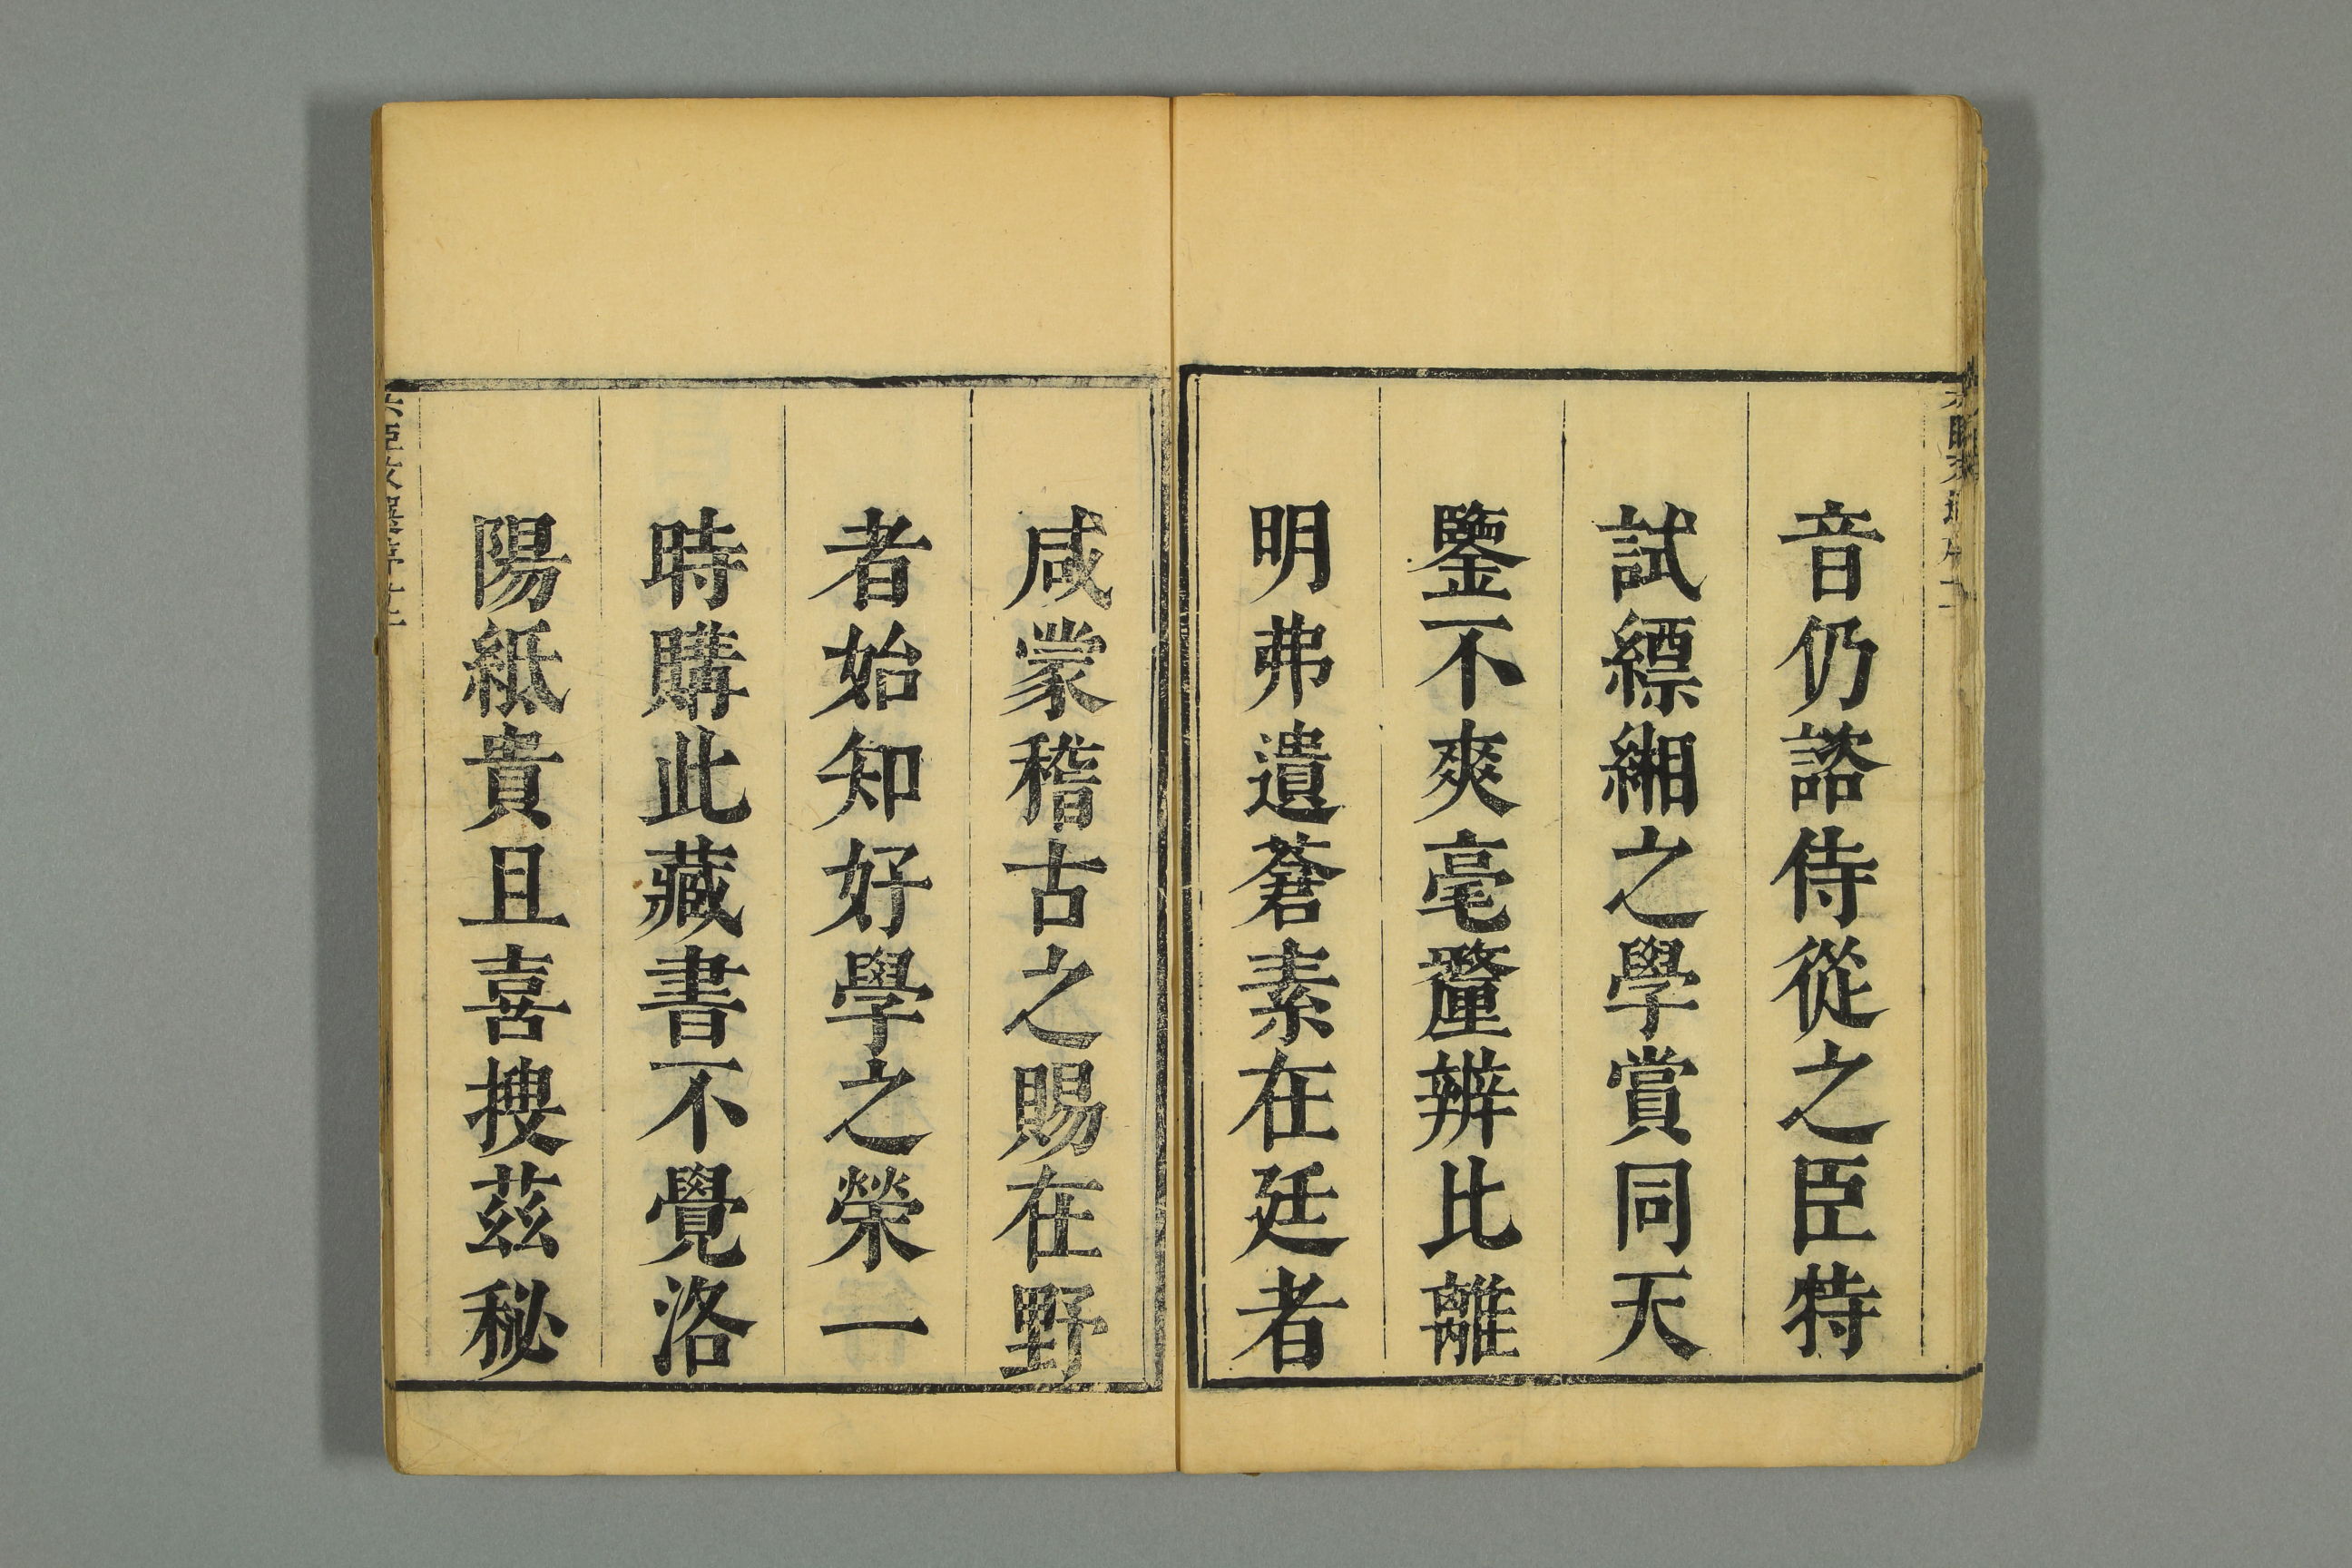 音仍諮侍從之臣特
試縹緗之學賞同天
鑒不爽毫釐辨比離
明弗遺蒼素在廷者
咸蒙稽古之賜在野
者始知好學之榮一
時購此藏書不覺洛
陽紙貴且喜搜茲秘